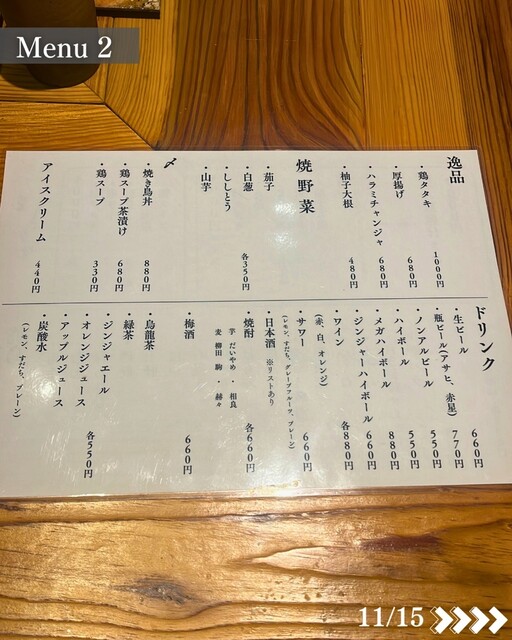 Menu 2
逸品
・鶏タタキ 1000円
・厚揚げ 680円
・ハラミチャンジャ 680円
・柚子大根 480円
焼野菜
・茄子
・白葱 各350円
・ししとう
・山芋
〆
・焼き鳥丼 880円
・鶏スープ茶漬け 680円
・鶏スープ 330円
アイスクリーム 440円
ドリンク
・生ビール 660円
・瓶ビール(アサヒ、赤星) 770円
・ノンアルビール 550円
・ハイボール 550円
・メガハイボール 880円
・ジンジャーハイボール 660円
・ワイン 各880円
(赤、白、オレンジ)
・サワー 660円
(レモン、すだち、グレープフルーツ、プレーン)
・日本酒 ※リストあり
・焼酎 各660円
芋 だいやめ ・ 相良
麦 柳田 駒 ・ 赫々
・梅酒 660円
・烏龍茶
・緑茶
・ジンジャエール
・オレンジジュース 各550円
・アップルジュース
・炭酸水
(レモン、すだち、プレーン)
11/15